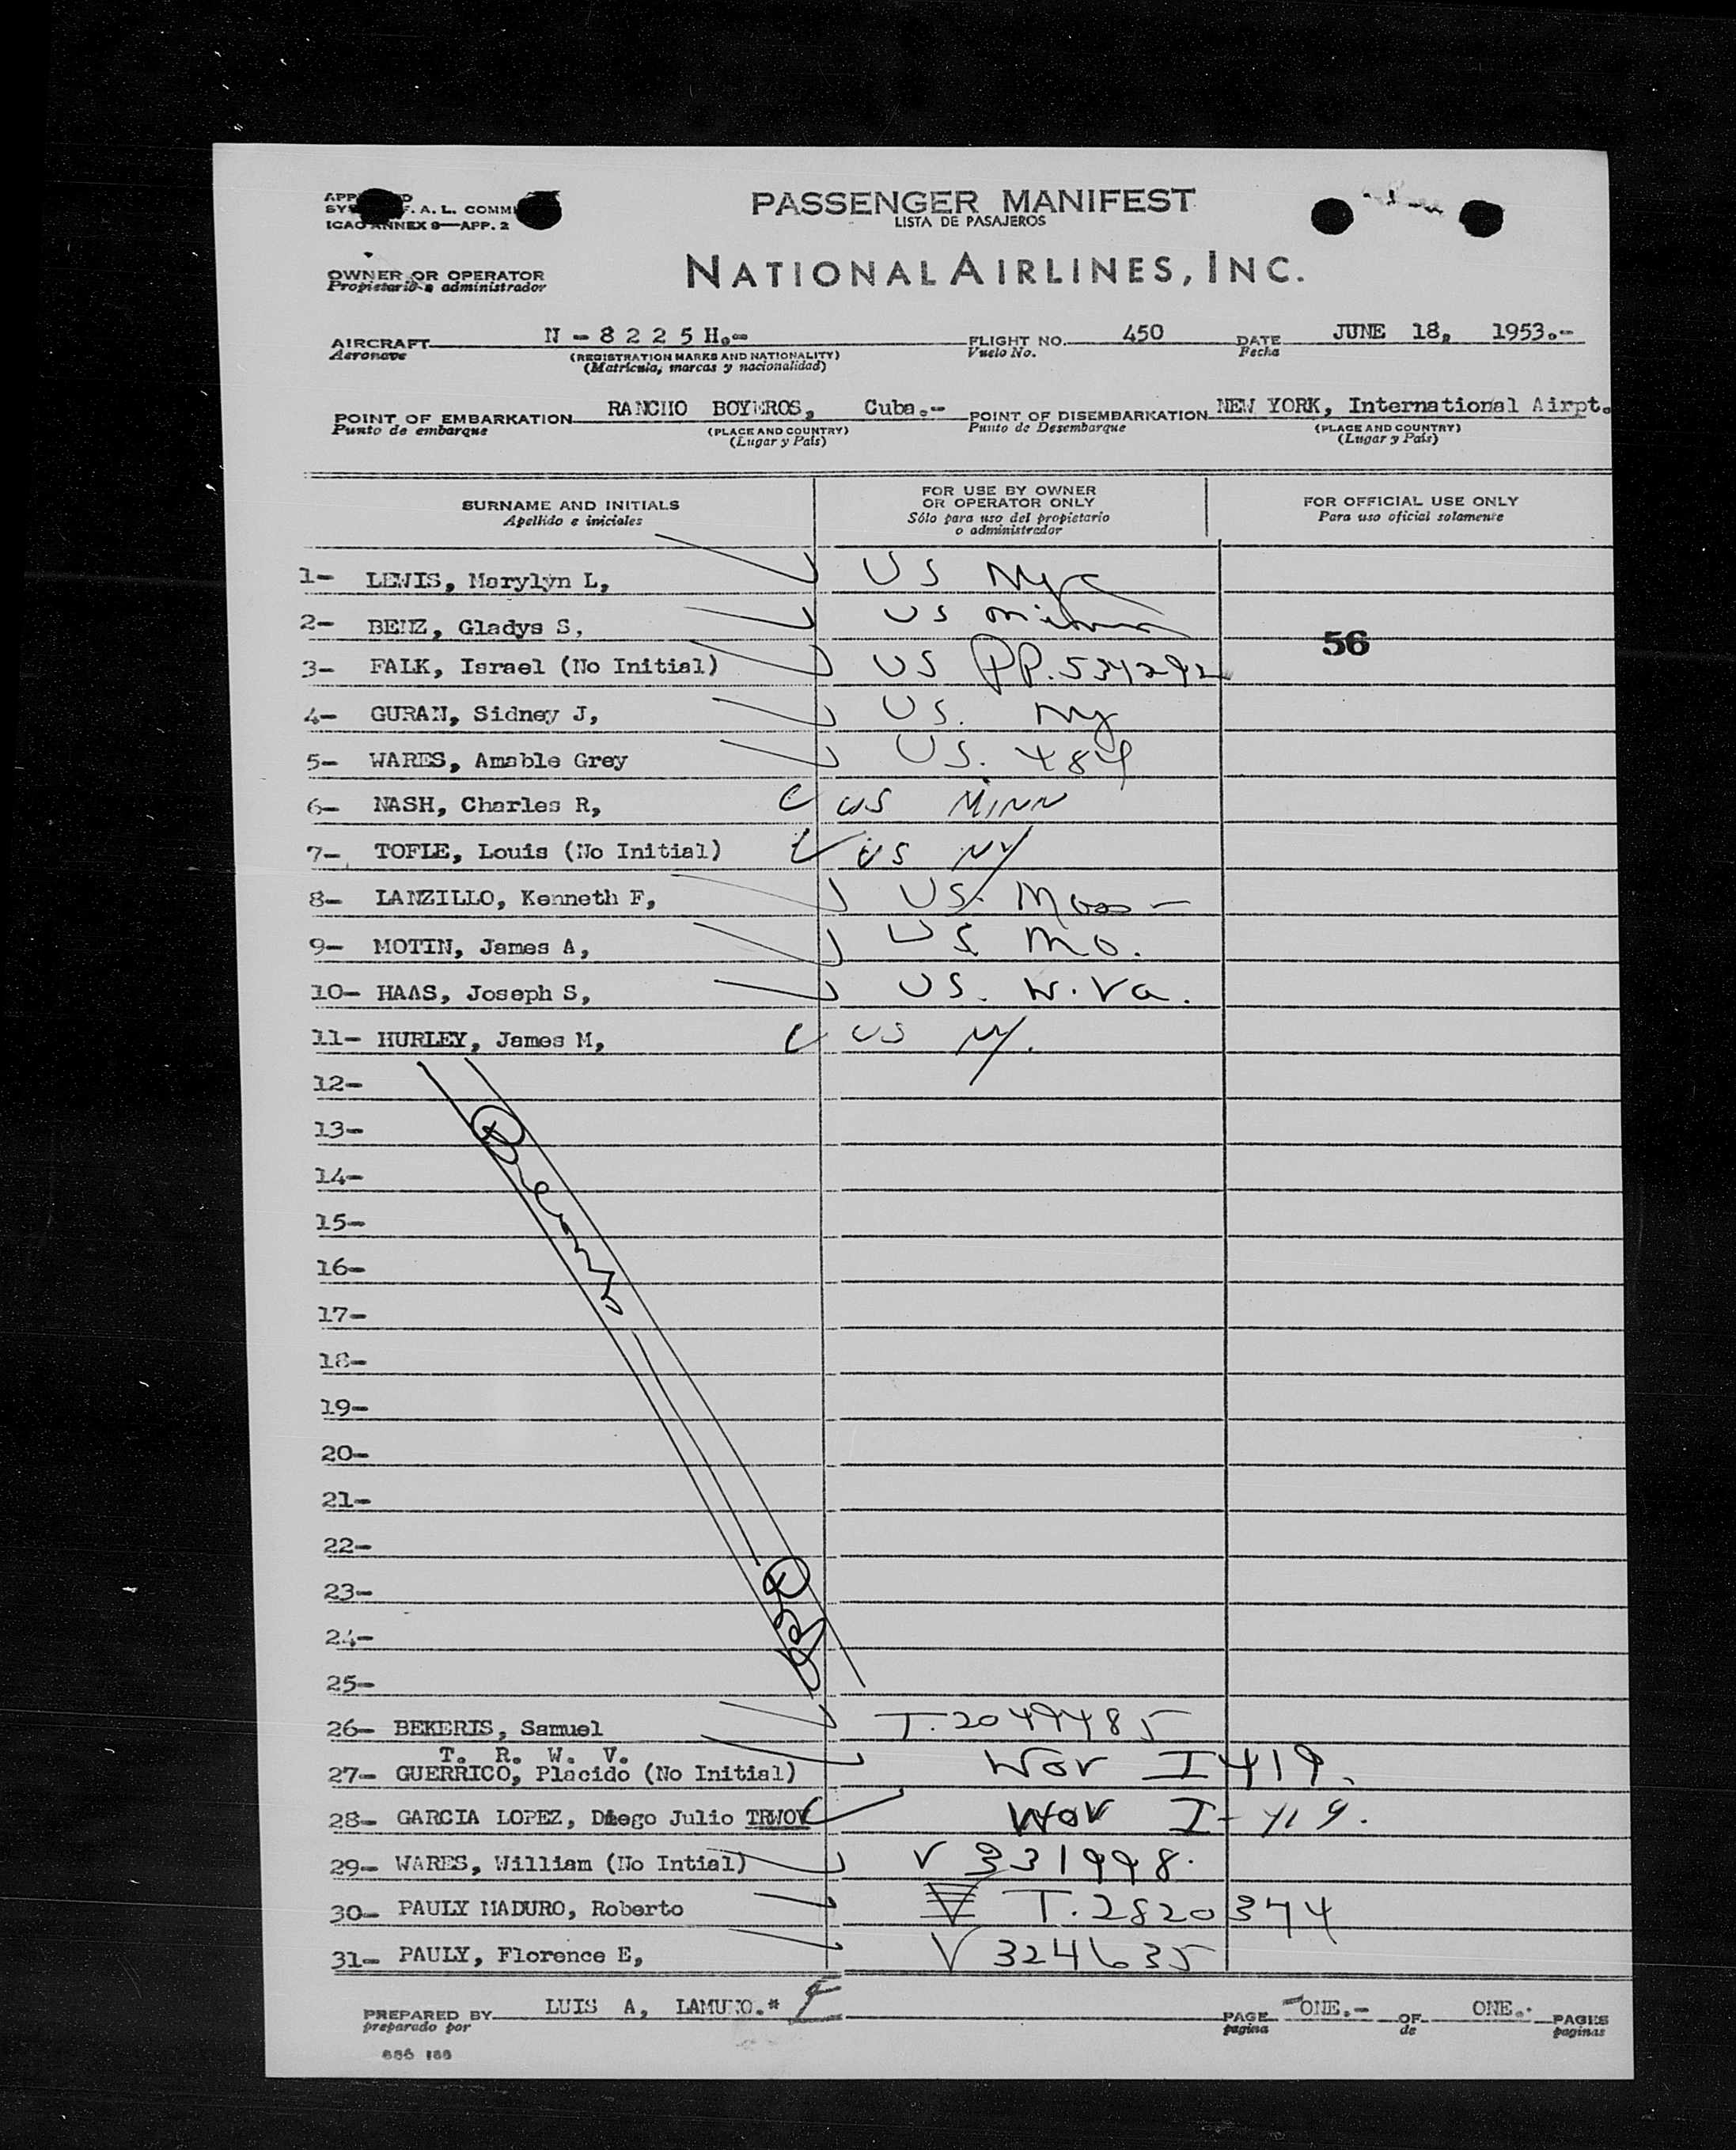 PASSENGER MANIFEST
LISTA DE PASAJEROS
F. A. L. COMMI
ICAO ANNEX 9—APP. 2
OWNER OR OPERATOR
Propietario o administrador
NATIONAL AIRLINES, INC.
AIRCRAFT N - 8 2 2 5 H.- FLIGHT NO. 450 DATE JUNE 18, 1953.-
Aeronave (REGISTRATION MARKS AND NATIONALITY) Vuelo No. Fecha
(Matrícula, marcas y nacionalidad)
POINT OF EMBARKATION RANCHO BOYEROS, Cuba.- POINT OF DISEMBARKATION NEW YORK, International Airpt.
Punto de embarque (PLACE AND COUNTRY) Punto de Desembarque (PLACE AND COUNTRY)
(Lugar y País) (Lugar y País)
SURNAME AND INITIALS
Apellido e iniciales
FOR USE BY OWNER
OR OPERATOR ONLY
Sólo para uso del propietario
o administrador
FOR OFFICIAL USE ONLY
Para uso oficial solamente
1- LEWIS, Marylyn L, US NYC
2- BENZ, Gladys S, US
56
3- FALK, Israel (No Initial) US PP. 534292
4- GURAN, Sidney J, US. NY
5- WARES, Amable Grey US. 484
6- NASH, Charles R, US MINN
7- TOFLE, Louis (No Initial) US NY
8- LANZILLO, Kenneth F, US. Mass -
9- MOTIN, James A, US Mo.
10- HAAS, Joseph S, US. W. Va.
11- HURLEY, James M, US NY.
12-
13-
14-
15-
16-
17-
18-
19-
20-
21-
22-
23-
24-
25-
26- BEKERIS, Samuel T. 2049485
T. R. W. V.
27- GUERRICO, Placido (No Initial) WOV I 419.
28- GARCIA LOPEZ, Diego Julio TRWOV WOV I - 419.
29- WARES, William (No Intial) V 331998.
30- PAULY MADURO, Roberto T. 2820374
31- PAULY, Florence E, V 324635
PREPARED BY LUIS A, PAGE ONE.- OF ONE.- PAGES
preparado por pagina de paginas